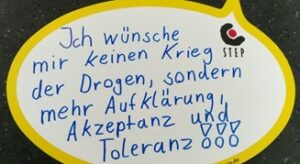 Ich wünsche
mir keinen Krieg
der Drogen, sondern
mehr Aufklärung,
Akzeptanz und
Toleranz!!!
STEP